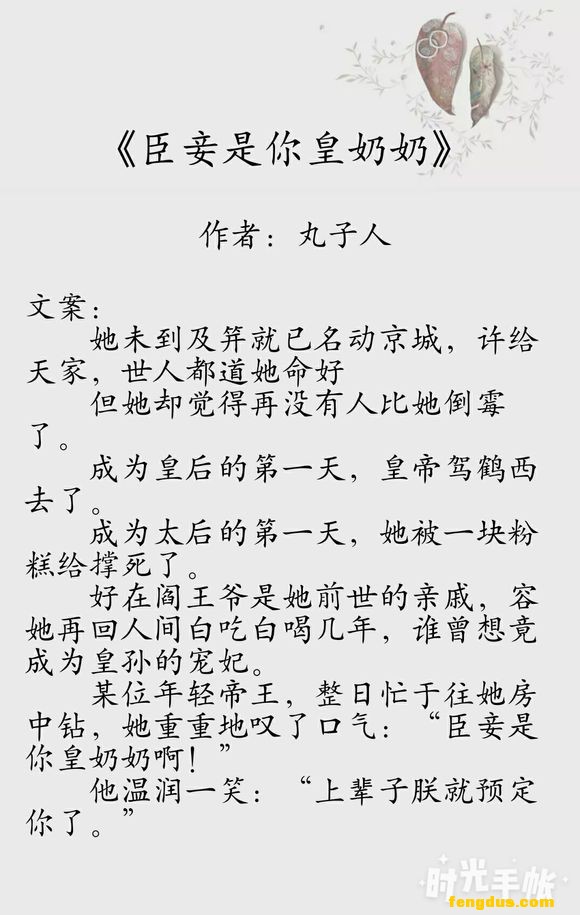 《臣妾是你皇奶奶》
作者：丸子人
文案：
她未到及笄就已名动京城，许给
天家，世人都道她命好
但她却觉得再没有人比她倒霉
了。
成为皇后的第一天，皇帝驾鹤西
去了。
成为太后的第一天，她被一块粉
糕给撑死了。
好在阎王爷是她前世的亲戚，容
她再回人间白吃白喝几年，谁曾想竟
成为皇孙的宠妃。
某位年轻帝王，整日忙于往她房
中钻，她重重地叹了口气：“臣妾是
你皇奶奶啊！”
他温润一笑：“上辈子朕就预定
你了。”
时光手帐
fengdus.com